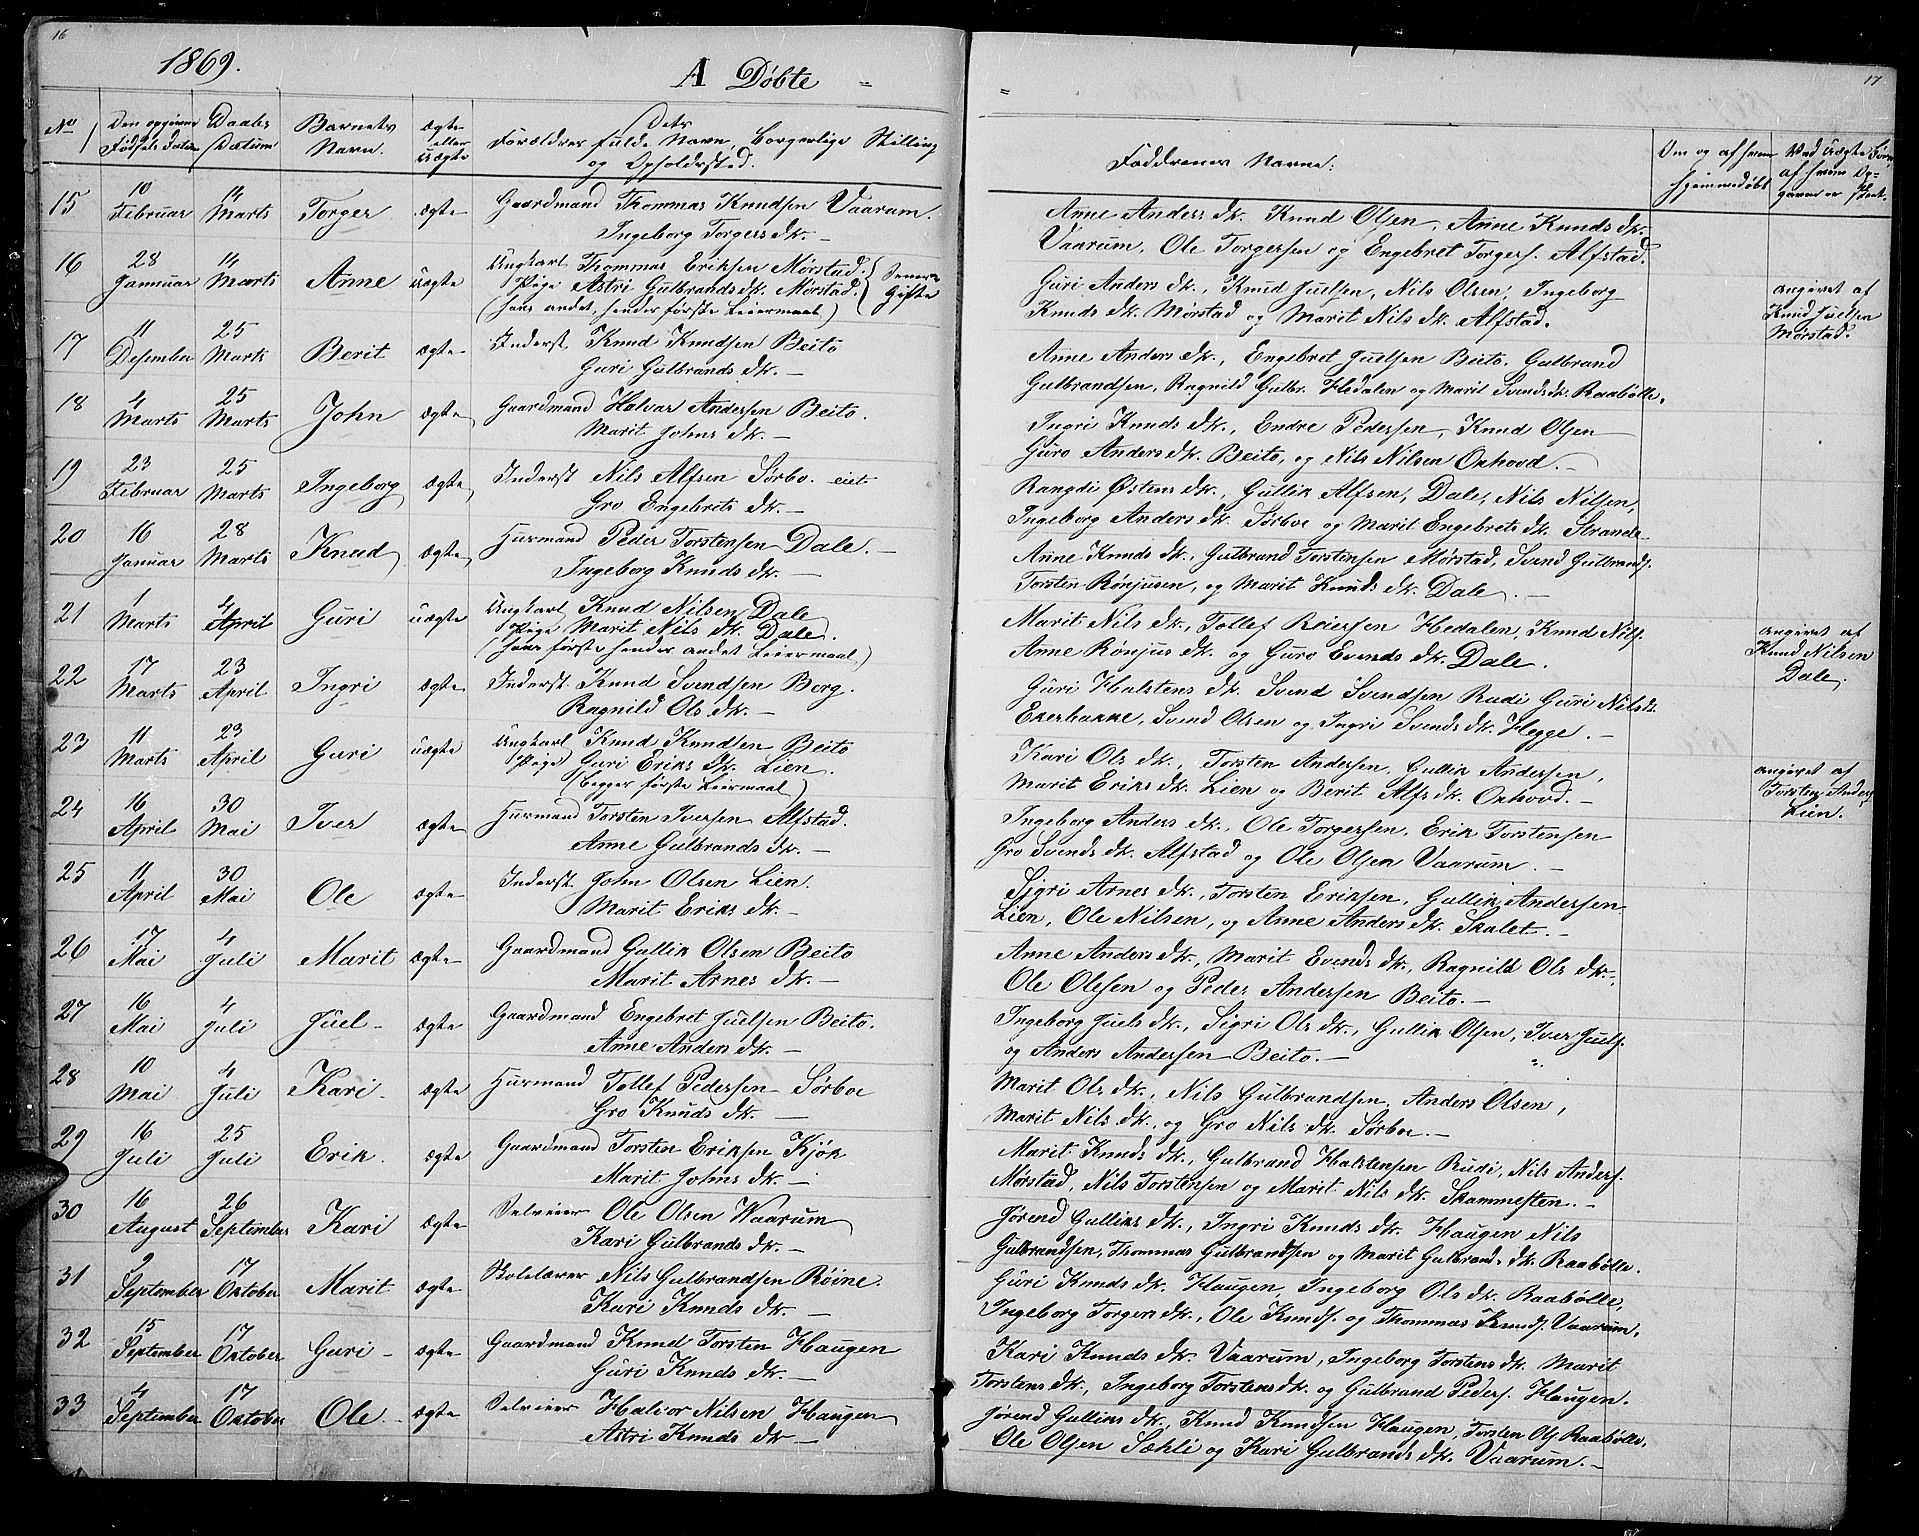 16
17
1869.
A Døbte
No
Den opgivne Fødsels Datum
Daabs Datum
Barnets Navn.
Ægte eller Uægte
Dets Forældres fulde Navn, borgerlige Stilling og Opholdssted.
Faddernes Navne.
Om og af hvem hjemmedøbt
15 10 Februar 14 Marts Torger ægte Gaardmand Thommas Knudsen Vaarum.
Ingeborg Torgers Dk. –
Anne Anders Dk. Knud Olsen, Anne Knuds Dk.
Vaarum, Ole Torgersen og Engebret Torgers. Alfstad.
16 28 Januar 14 Marts Anne uægte Ungkarl Thommas Eriksen Mørstad.
Pige Astri Gulbrands Dk. Mørstad. Gifte
(hans andet, hendes første Leiermaal)
Guri Anders Dk., Knud Juelsen, Nils Olsen, Ingeborg
Knuds Dk. Mørstad og Marit Nils Dk. Alfstad.
angivet af
Knud Juelsen
Mørstad.
17 11 Desember 25 Marts Berit ægte Inderst. Knud Knudsen Beito
Guri Gulbrands Dk. –
Anne Anders Dk., Engebret Juelsen Beito, Gulbrand
Gulbrandsen, Ragnild Gulbr. Hedalen og Marit Svends Dk. Raabølle.
18 4 Marts 25 Marts John ægte Gaardmand Halvar Andersen Beito.
Marit Johns Dk. –
Ingri Knuds Dk., Endre Pedersen, Knud Olsen
Guro Anders Dk. Beito, og Nils Nilsen Onhovd. –
19 23 Februar 25 Marts Ingeborg ægte Inderst Nils Alfsen Sørbo. eiet.
Gro Engebrets Dk. –
Rangdi Østens Dk., Gullik Alfsen, Dale, Nils Nilsen,
Ingeborg Anders Dk. Sørboe og Marit Engebrets Dk. Strande
20 16 Januar 28 Marts Knud ægte Husmand Peder Torstensen Dale. –
Ingeborg Knuds Dk. –
Anne Knuds Dk., Gulbrand Torstensen Mørstad, Svend Gulbrands.
Torsten Rønjusen, og Marit Knuds Dk. Dale. –
21 1 Marts 4 April Guri uægte Ungkarl Knud Nilsen Dale
Pige Marit Nils Dk. Dale.
(hans første hendes andet Leiermaal)
Marit Nils Dk., Tollef Reiersen Hedalen, Knud Nils.
Anne Rønjus Dk. og Guro Evends Dk. Dale.
angivet af
Knud Nilsen
Dale.
22 17 Marts 23 April Ingri ægte Inderst. Knud Svendsen Berg.
Ragnild Ols Dk. –
Guri Halstens Dk. Svend Svendsen Rudi Guri Nils D.
Ekerbakke, Svend Olsen og Ingri Svends Dk. Hegge. –
23 11 Marts 23 April Guri uægte Ungkarl Knud Knudsen Beito
Pige Guri Eriks Dk. Lien.
(Begges første Leiermaal)
Kari Ols Dk., Torsten Andersen, Gullik Andersen,
Marit Eriks Dk. Lien og Berit Alfs Dk. Onhovd. –
angivet af
Torsten Anders
Lien.
24 16 April 30 Mai Iver ægte Husmand Torsten Iversen Alfstad.
Anne Gulbrands Dk. –
Ingeborg Anders Dk., Ole Torgersen, Erik Torstensen
Gro Svends Dk. Alfstad og Ole Olsen Vaarum. –
25 11 April 30 Mai Ole ægte Inderst. John Olsen Lien.
Marit Eriks Dk. –
Sigri Arnes Dk., Torsten Eriksen, Gullik Andersen
Lien, Ole Nilsen, og Anne Anders Dk. Skalet. –
26 17 Mai 4 Juli Marit ægte Gaardmand Gullik Olsen Beito
Marit Arnes Dk. –
Anne Anders Dk., Marit Evends Dk., Ragnild Ols Dk.,
Ole Olesen og Peder Andersen Beito. –
27 16 Mai 4 Juli Juel ægte Gaardmand Engebret Juelsen Beito.
Anne Anders Dk. –
Ingeborg Juels Dk., Sigri Ols Dk., Gullik Olsen, Iver Juels.
og Anders Andersen Beito. –
28 10 Mai 4 Juli Kari ægte Husmand Tollef Pedersen Sørboe
Gro Knuds Dk. –
Marit Ols Dk., Nils Gulbrandsen, Anders Olsen,
Marit Nils Dk., og Gro Nils Dk. Sørboe. –
29 16 Juli 25 Juli Erik. ægte Gaardmand Torsten Eriksen Kjøk
Marit Johns Dk. –
Marit Knuds Dk., Gulbrand Halstensen Rudi, Nils Anders.
Mørstad, Nils Torstensen og Marit Nils Dk. Skammesten. –
30 16 August 26 September Kari ægte Selveier Ole Olsen Waarum
Kari Gulbrands Dk. –
Jørend Gulliks Dk., Ingri Knuds Dk. Haugen Nils
Gulbrandsen, Thommas Gulbrandsen og Marit Gulbrands Dk. Raabølle.
31 2 September 17 Oktober Marit ægte Skolelærer Nils Gulbrandsen Røine.
Kari Knuds Dk. –
Guri Knuds Dk. Haugen, Ingeborg Ols Dk. Raabølle,
Ingeborg Torgers Dk., Ole Knuds. og Thommas Knuds. Vaarum.
32 15 September 17 Oktober Guri ægte Gaardmand Knud Torsten Haugen
Guri Knuds Dk. –
Kari Knuds Dk. Vaarum, Ingeborg Torstens Dk. Marit
Torstens Dk., Ingeborg Torstens Dk. og Gulbrand Peders. Haugen.
33 4 September 17 Oktober Ole ægte Selveier Halvor Nilsen Haugen
Astri Knuds Dk. –
Jørend Gulliks Dk., Knud Knudsen Haugen, Torsten Ols. Raabølle,
Ole Olsen Sæhli og Kari Gulbrands Dk. Vaarum. –